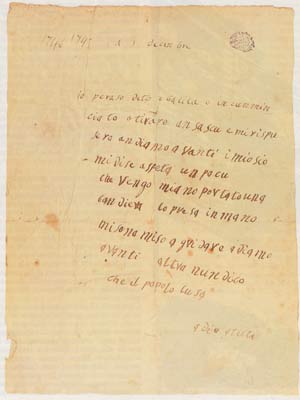 1746 1745 a 5 decembre
io peraso deto ebalila e incuminciato
ciato otirato un sascu e mi rispu
sero andiamo avanti i mio sio
mi dise aspeta un pocu
che vengo mi ano portato una
candieta lo presa in mano
mi sono miso a gridare adiamo
avanti altra nun dico
che il popolo lu sa